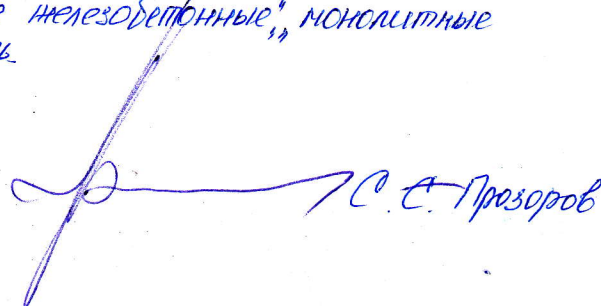 железобетонные", монолитные
С. С. Прозоров